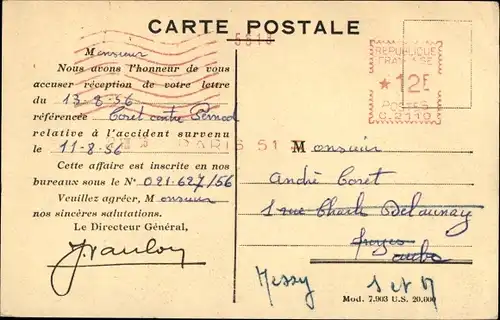 CARTE POSTALE
5613
Monsieur
Nous avons l'honneur de vous
accuser réception de votre lettre
du 13-8-56
référencée Coret contre Pernod
relative à l'accident survenu
le 11-8-56
Cette affaire est inscrite en nos
bureaux sous le N° 021.627/56
Veuillez agréer, Monsieur
nos sincères salutations.
Le Directeur Général,
PARIS 51
REPUBLIQUE
FRANÇAISE
★ 12F
POSTES
C.2110
Monsieur
André Coret
1 rue Charles Delaunay
Troyes
Aube
Messy S et M
Mod. 7.903 U.S. 20.600